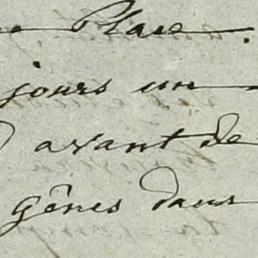 Place.
jours un
avant de
gênes dans